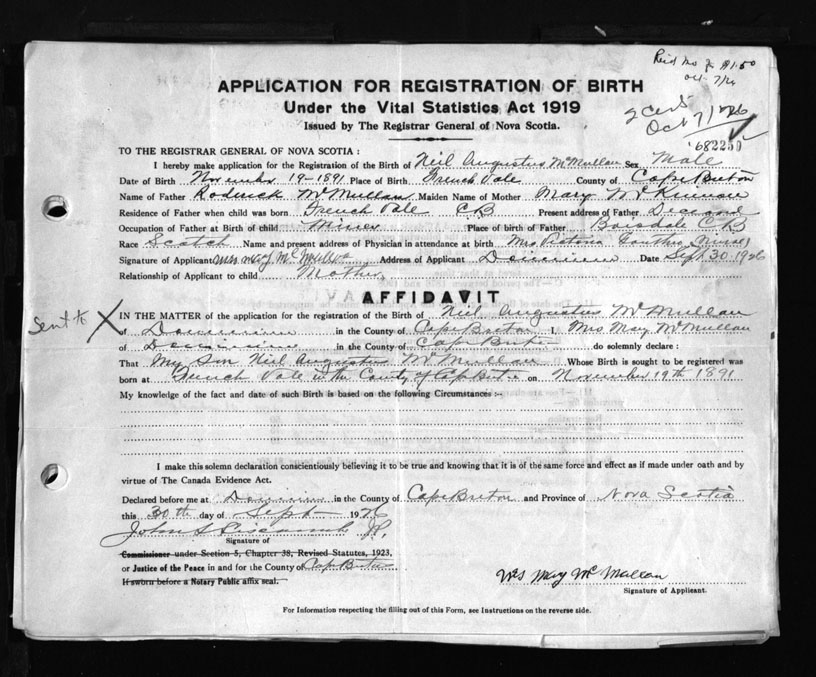 Rec'd Mo $1.50
Oct 7/26
2 Certs
Oct 7/1926
682250
APPLICATION FOR REGISTRATION OF BIRTH
Under the Vital Statistics Act 1919
Issued by The Registrar General of Nova Scotia.
TO THE REGISTRAR GENERAL OF NOVA SCOTIA:
I hereby make application for the Registration of the Birth of Neil Augustus McMullan Sex Male
Date of Birth November 19-1891 Place of Birth French Vale County of Cape Breton
Name of Father Roderick McMullan Maiden Name of Mother Mary McKinnon
Residence of Father when child was born French Vale CB Present address of Father Diceased
Occupation of Father at Birth of child Miner Place of birth of Father Boisdale CB
Race Scotch Name and present address of Physician in attendance at birth Mrs Victoria Gouthro (Nurse)
Signature of Applicant Mrs Mary McMullan Address of Applicant Dominion Date Sept 30 1926
Relationship of Applicant to child Mother
AFFIDAVIT
Sent to X
IN THE MATTER of the application for the registration of the Birth of Neil Augustus McMullan
of Dominion in the County of Cape Breton I, Mrs Mary McMullan
of Dominion in the County of Cape Breton do solemnly declare:
That My Son Neil Augustus McMullan Whose Birth is sought to be registered was
born at French Vale in the County of Cape Breton on November 19th 1891
My knowledge of the fact and date of such Birth is based on the following Circumstances:-
I make this solemn declaration conscientiously believing it to be true and knowing that it is of the same force and effect as if made under oath and by
virtue of The Canada Evidence Act.
Declared before me at Dominion in the County of Cape Breton and Province of Nova Scotia
this 30th day of Sept 1926
John S J.P.
Signature of
Commissioner under Section 5, Chapter 38, Revised Statutes, 1923,
or Justice of the Peace in and for the County of Cape Breton
If sworn before a Notary Public affix seal.
Mrs Mary McMullan
Signature of Applicant.
For Information respecting the filling out of this Form, see Instructions on the reverse side.